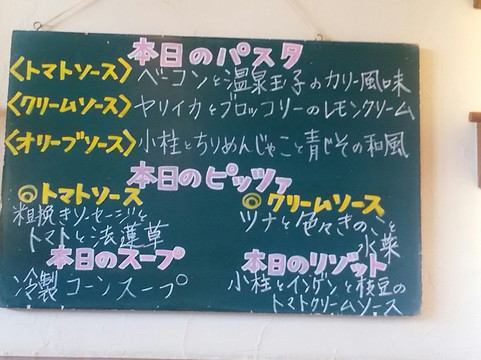 本日のパスタ
〈トマトソース〉ベーコンと温泉玉子のカリー風味
〈クリームソース〉ヤリイカとブロッコリーのレモンクリーム
〈オリーブソース〉小柱とちりめんじゃこと青じその和風
本日のピッツァ
◎トマトソース
粗挽きソーセージと
トマトと法蓮草
◎クリームソース
ツナと色々きのこと
水菜
本日のスープ
冷製コーンスープ
本日のリゾット
小柱とインゲンと枝豆の
トマトクリームソース